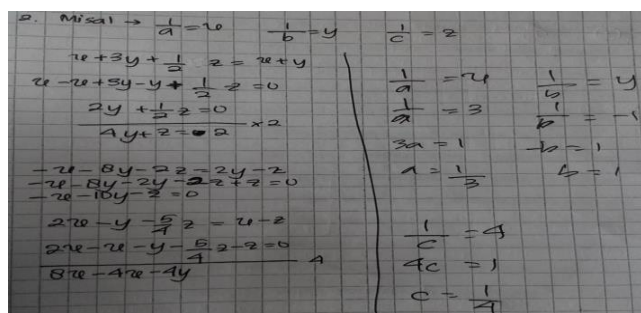 2. Misal → 1/a = x   1/b = y   1/c = z
x + 3y + 1/2 z = x + y
x - x + 3y - y + 1/2 z = 0
2y + 1/2 z = 0
×2
4y + z = 0
-x - 8y - 2z = 2y - z
-x - 8y - 2y - 2z + z = 0
-x - 10y - z = 0
2x - y - 5/4 z = x - z
2x - x - y - 5/4 z - z = 0
4
8x - 4x - 4y
1/a = x
1/a = 3
3a = 1
a = 1/3
1/b = y
1/b = -1
-b = 1
b = 1
1/c = 4
4c = 1
c = 1/4